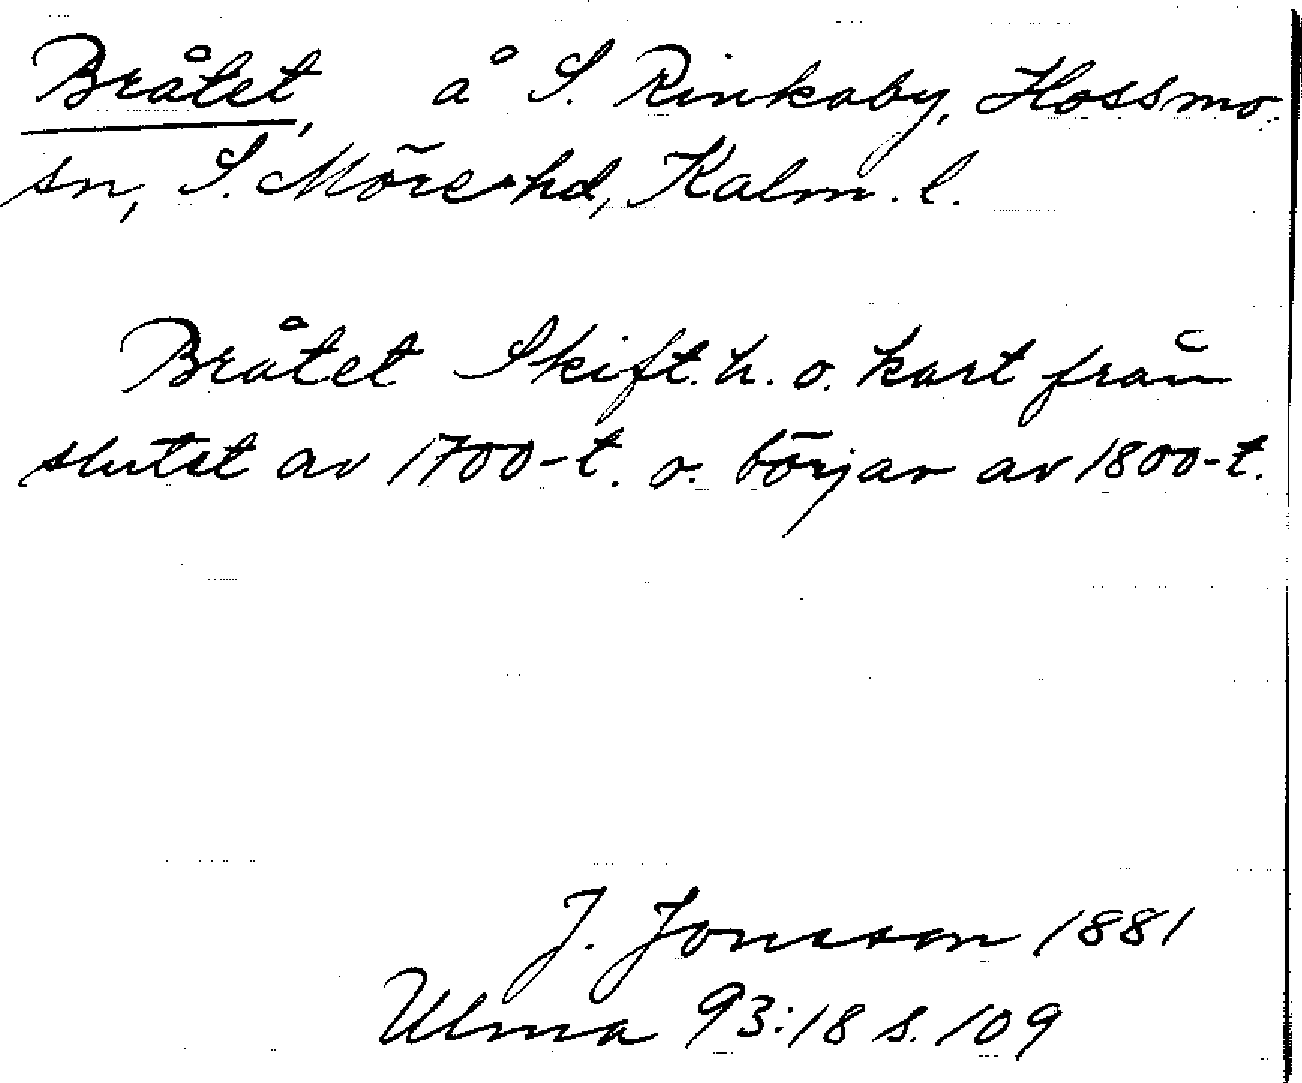 Bråtet, å S. Rinkaby, Hossmo
sn, S. Möre hd, Kalm. l.
Bråtet Skift. h. o. kart från
slutet av 1700-t. o. börjar av 1800-t.
J. Jonsson 1881
Ulma 93:18 s. 109